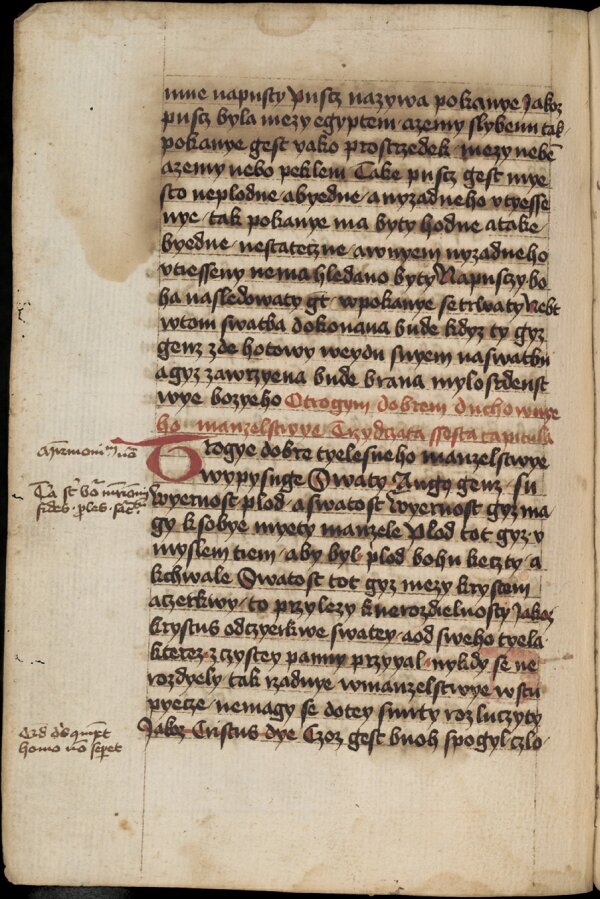 mne napusty Pusst nazywa pokanye Jakoz
pusst byla mezy egyptem azemy slybenu tak
pokanye gest yako prostrzedek mezy nebē
azemy nebo peklem Take pusst gest mye
sto neplodne abyedne anyzadneho vtyesse
nye tak pokanye ma byty hodne atake
byedne nestateczne awnyem nyzadneho
vtiesseny nema hledano byty Napussczy bo
ha nasledowaty gt wpokanye setrwaty Nebt
wtom swatba dokonana bude kdyz ty gyz
genz zde hotowy weydu snyem naswatbu
agyz zawrzyena bude brana mylostdenst
wye bozyeho Otrogym dobrem duchownye
ho manzelstwye Trzydczata ssesta capitula
Trogye dobre tyelesneho manzelstwye
wypysuge Swaty Augꝫ genz su
Wyernost plod aswatost Wyernost gyz ma
gy ksobye myety manzele Plod tot gyz v
myslem tiem aby byl plod bohu keczty a
kchwale Swatost tot gyz mezy krystem
aczerkwy to przylezy knerozdielnosty Jakoz
krystus odczyerkwe swatey aod sweho tyela
kterez zczystey panny przyyal nykdy se ne
rozdyely tak rzadnye wmanzelstwye wstu
pyecze nemagy se dotey smrty rozluczyty
Jakoz Cristus dye Czoz gest buoh spogyl czlo
fides proles
homo nō sepet